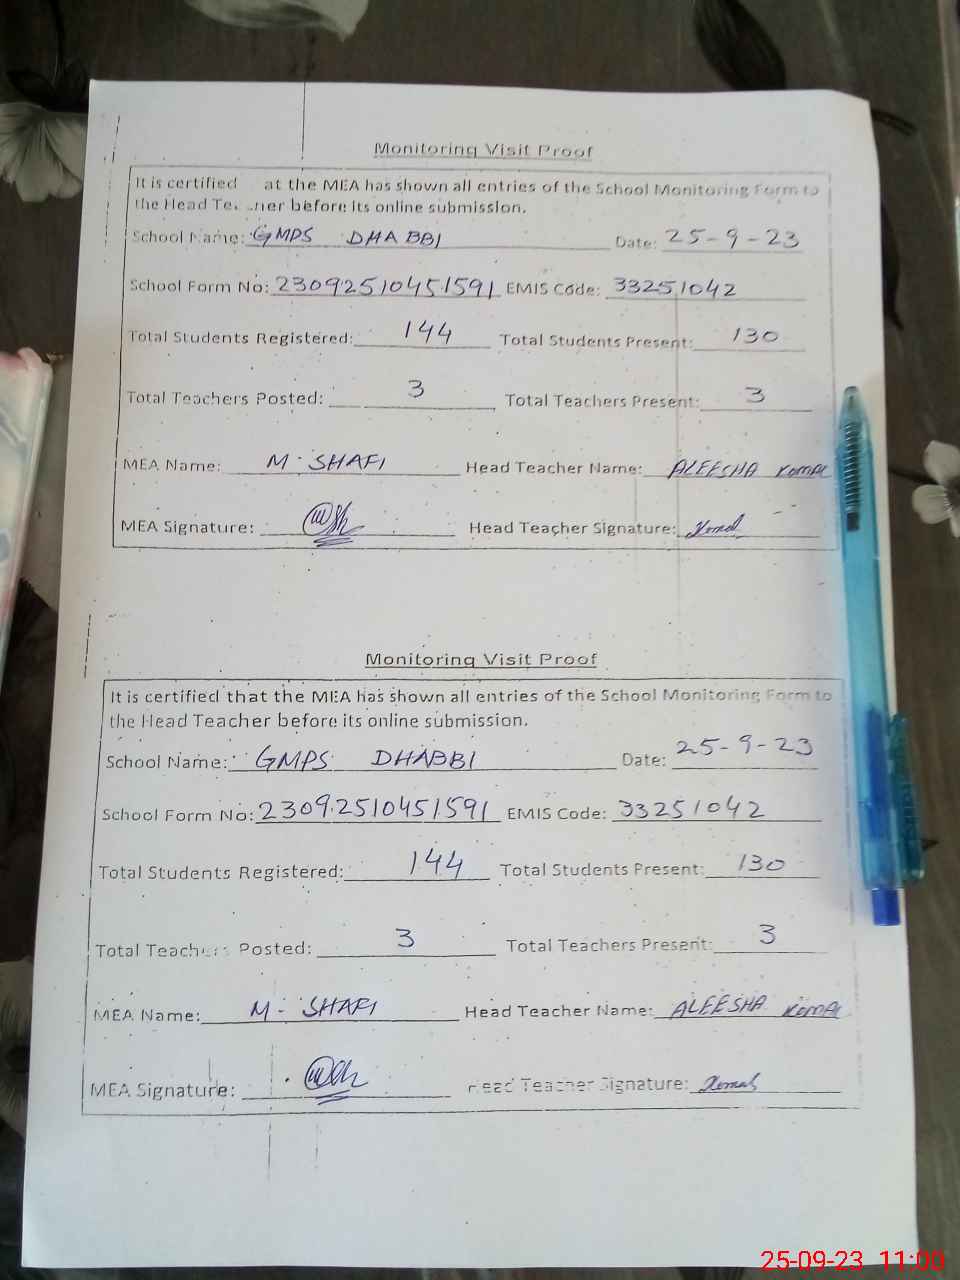 Monitoring Visit Proof
It is certified at the MEA has shown all entries of the School Monitoring Form to
the Head before its online submission.
School Name: GMPS DHABBI Date: 25-9-23
School Form No: 23092510451591 EMIS Code: 33251042
Total Students Registered: 144 Total Students Present: 130
Total Teachers Posted: 3 Total Teachers Present: 3
MEA Name: M. SHAFI Head Teacher Name: ALEESHA KOMAL
MEA Signature: Head Teacher Signature: Komal
Monitoring Visit Proof
It is certified that the MEA has shown all entries of the School Monitoring Form to
the Head Teacher before its online submission.
School Name: GMPS DHABBI Date: 25-9-23
School Form No: 23092510451591 EMIS Code: 33251042
Total Students Registered: 144 Total Students Present: 130
Total Teachers Posted: 3 Total Teachers Present: 3
MEA Name: M. SHAFI Head Teacher Name: ALEESHA KOMAL
MEA Signature: Head Teacher Signature: Komal
25-09-23 11:00